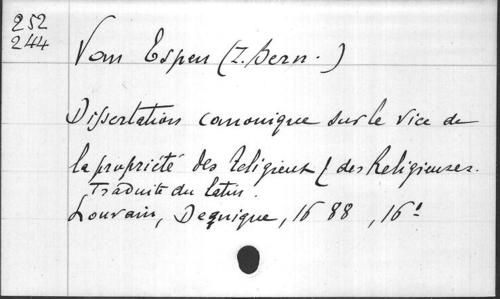 252
244
Van Espen (Z. Bern.)
Dissertation canonique sur le vice de
la propriété des religieux & des Religieuses.
Traduite du latin.
Louvain, Denique, 1688, 16°